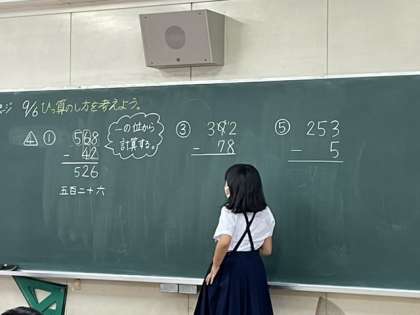 ページ 9/6 ひっ算のし方を考えよう。
④ ① 568
- 42
526
五百二十六
一の位から
計算する。
③ 362
- 78
⑤ 253
- 5